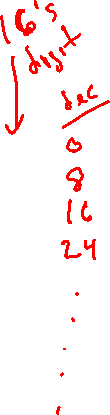 16's
digit
dec
0
8
16
24
.
.
.
.